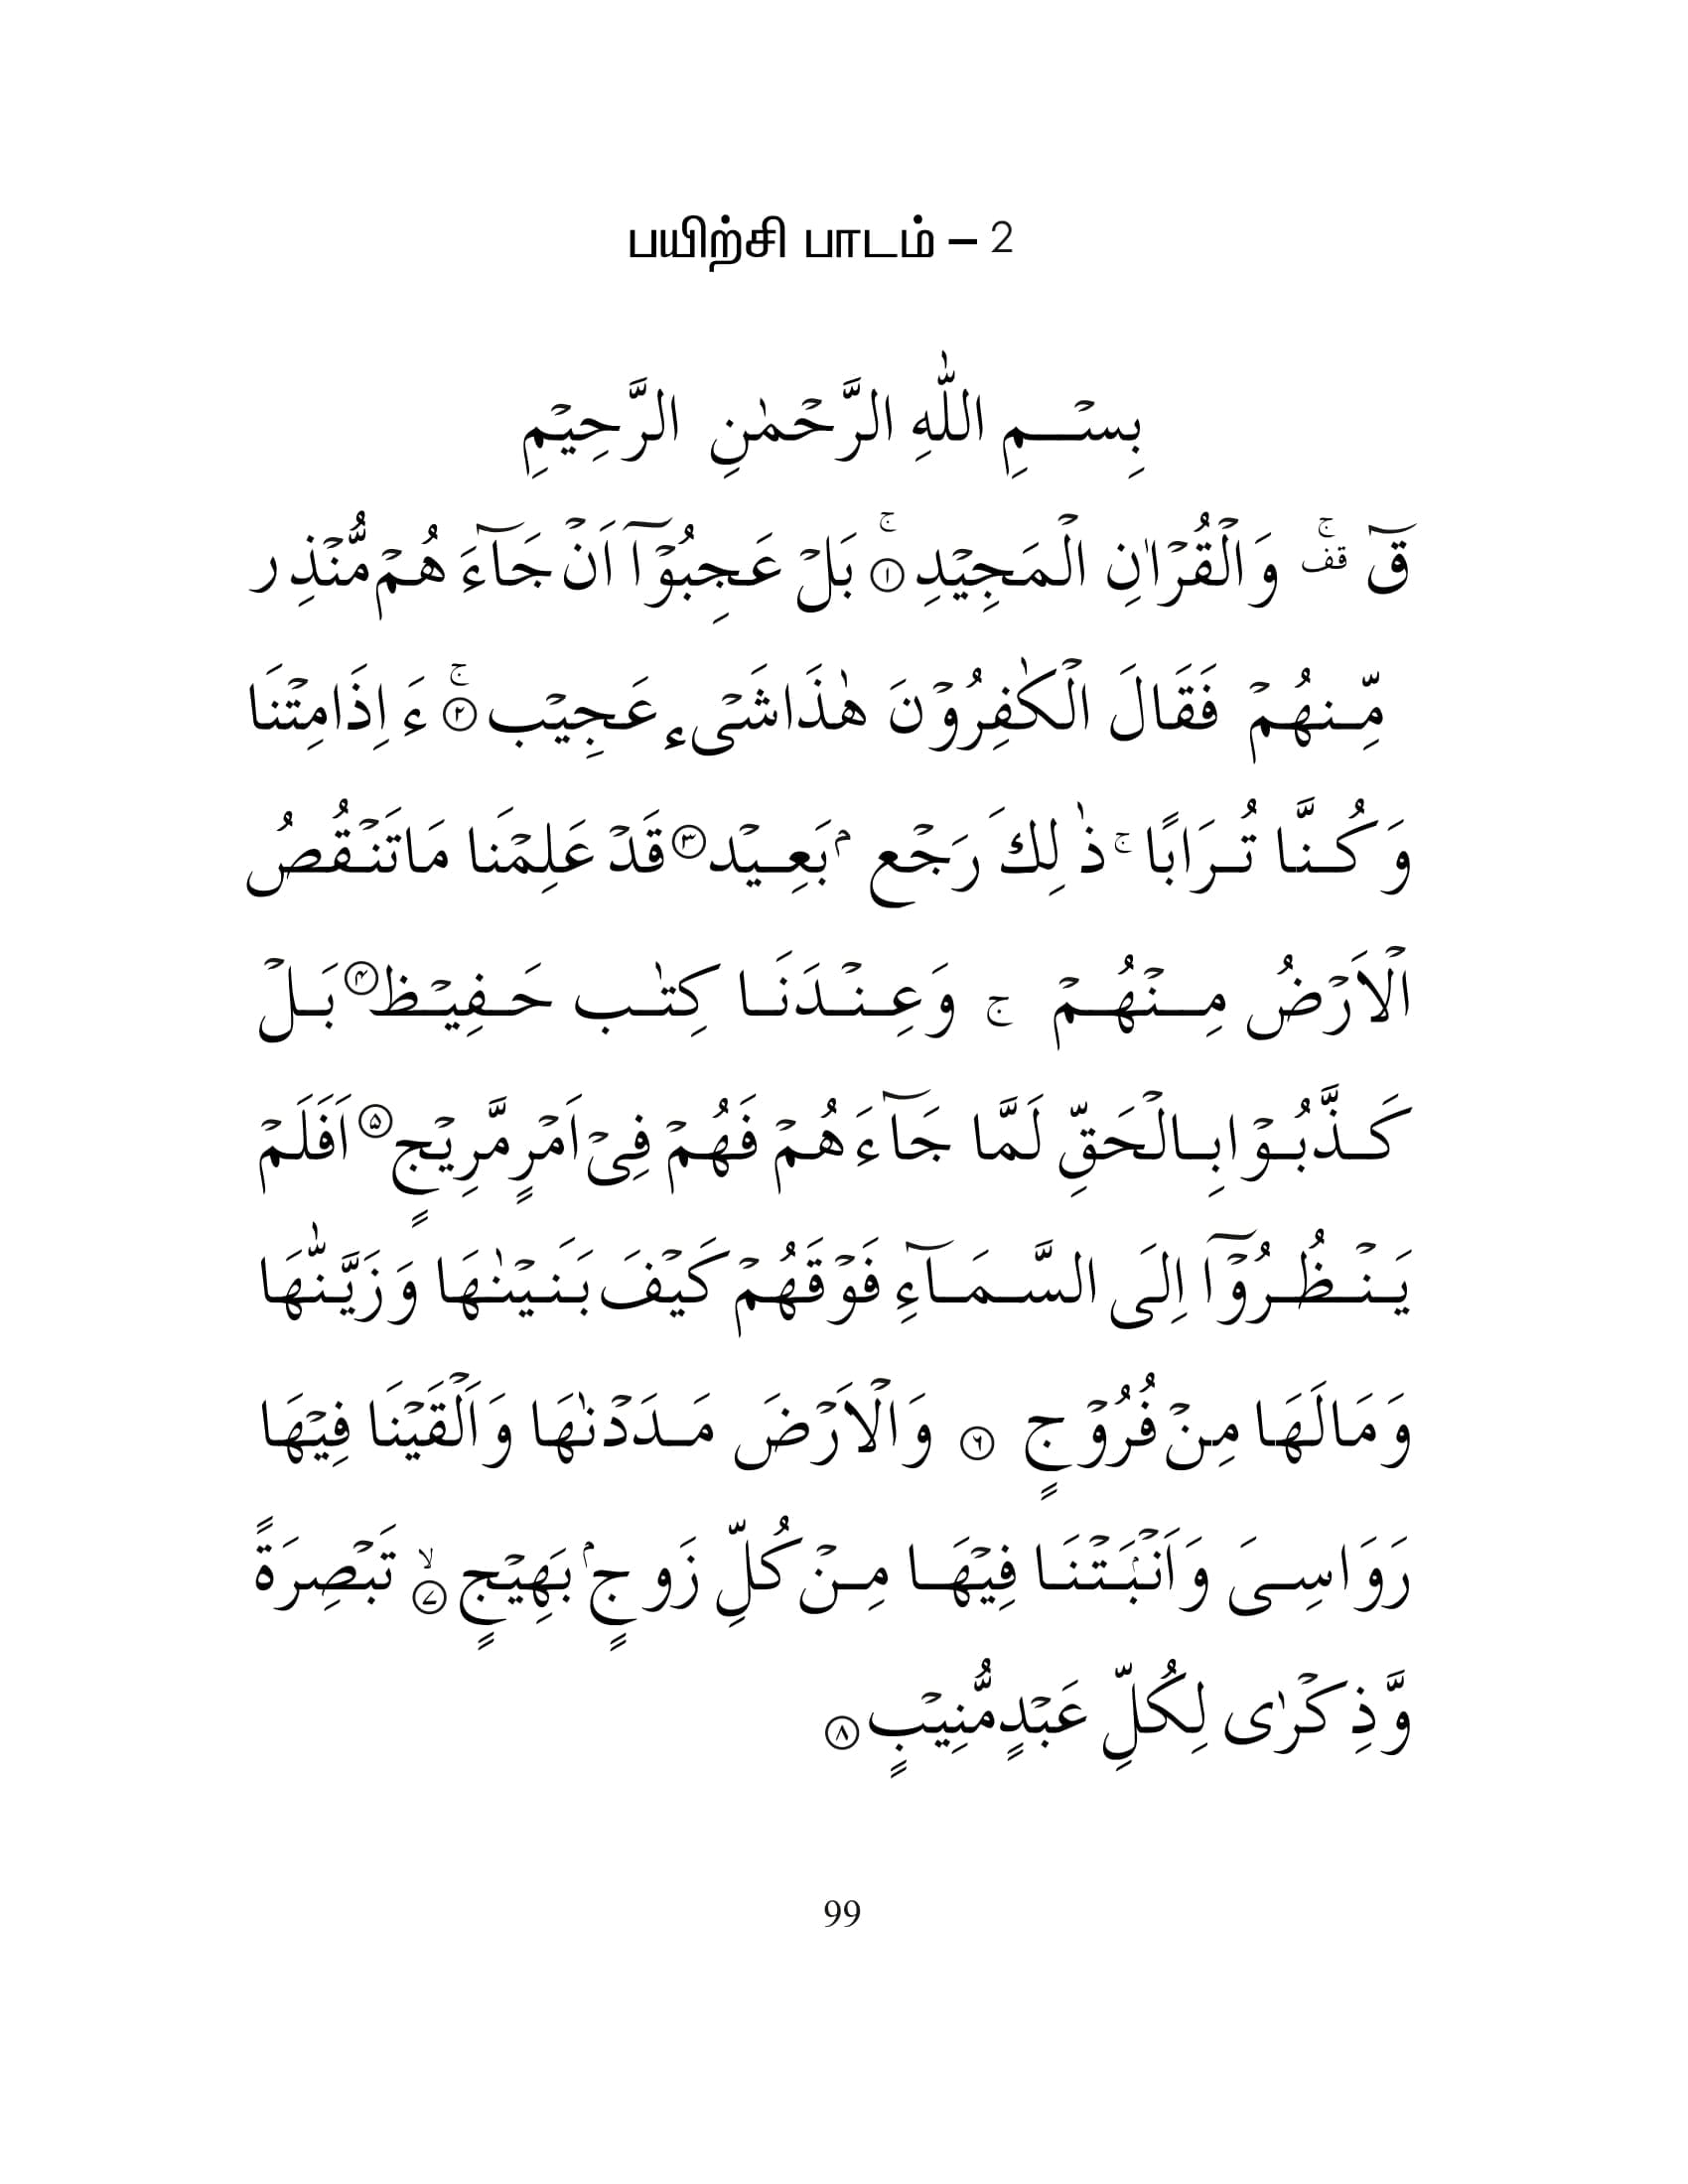 பயிற்சி பாடம் – 2
بِسْـــمِ اللّٰهِ الرَّحْمٰنِ الرَّحِيْمِ
قٓ ۚقف وَالْقُرْاٰنِ الْمَجِيْدِ ۚ۝۱ بَلْ عَجِبُوْٓا اَنْ جَآءَ هُمْ مُّنْذِر
مِّـنهُـمْ فَقَالَ الْكٰفِرُوْنَ هٰذَاشَیْء عَجِيْب ۚ۝۲ ءَ اِذَامِتْنَا
وَ كُـنَّا تُـرَابًا ۚ ذٰ لِكَ رَجْع ۢ بَعِـيْد ۝۳ قَدْ عَلِمْنَا مَاتَنْـقُصُ
الْاَرْضُ مِــنْهُـمْ ج وَعِـنْـدَنَـا كِتٰـب حَـفِيْـظ ۝۴ بَـلْ
كَـذَّبُـوْ ابِـالْحَقِّ لَمَّا جَآءَ هُمْ فَهُمْ فِیْ اَمْرٍ مَّرِيْجٍ ۝۵ اَفَلَمْ
يَـنْـظُـرُوْٓا اِلَی السَّـمَـآءِ فَوْقَهُمْ كَيْفَ بَنَيْنٰهَا وَ زَيَّنّٰهَا
وَ مَالَهَا مِنْ فُرُوْجٍ ۝۶ وَالْاَرْضَ مَـدَدْنٰهَا وَاَلْقَيْنَا فِيْهَا
رَوَاسِـیَ وَاَنْۢبَـتْنَا فِيْهَـا مِـنْ كُلِّ زَو جٍ ۢ بَهِيْجٍ ۙ۝۷ تَبْصِرَةً
وَّ ذِكْرٰی لِكُلِّ عَبْدٍ مُّنِيْبٍ ۝۸
99